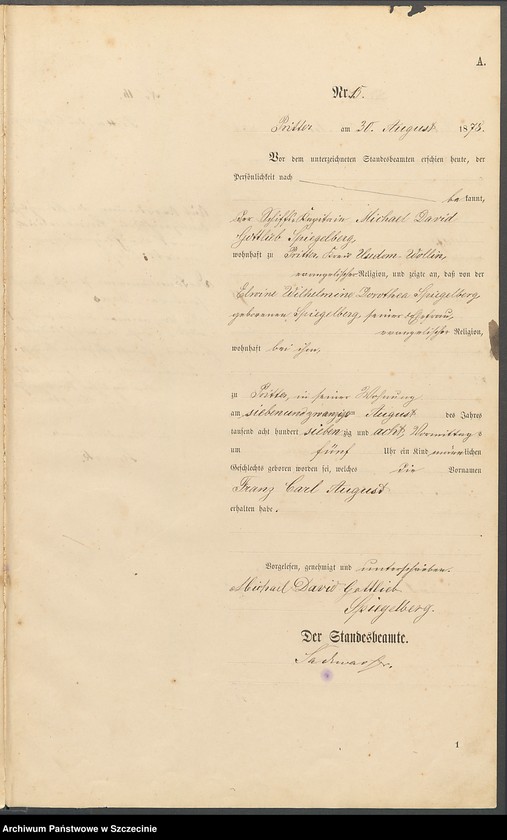 A.
Nr. 15.
Pritter am 30. August 1878.
Vor dem unterzeichneten Standesbeamten erschien heute, der
Persönlichkeit nach
be kannt,
der Schiffs-Kapitain Michael David
Gottlieb Spiegelberg,
wohnhaft zu Pritter, Kreis Usedom-Wollin,
evangelischer Religion, und zeigte an, daß von der
Elwine Wilhelmine Dorothea Spiegelberg,
geborenen Spiegelberg, seiner Ehefrau,
evangelischer Religion,
wohnhaft bei ihm,
zu Pritter, in seiner Wohnung
am siebenundzwanzigsten August des Jahres
tausend acht hundert siebenzig und acht, Vormittags
um fünf Uhr ein Kind männlichen
Geschlechts geboren worden sei, welches die Vornamen
Franz Carl August
erhalten habe.
Vorgelesen, genehmigt und unterschrieben.
Michael David Gottlieb
Spiegelberg.
Der Standesbeamte.
1
Archiwum Państwowe w Szczecinie